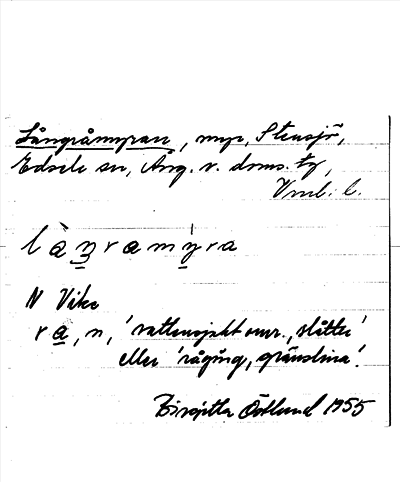 Långråmyran, myr, Stensjö,
Edsele sn, Ång. v. doms. tg,
Vnrl. l.
långramyra
N Vike
ra, n, 'vattensjukt omr., slåtte'
eller 'rågång, gränslinia'.
Birgitta Östlund 1955